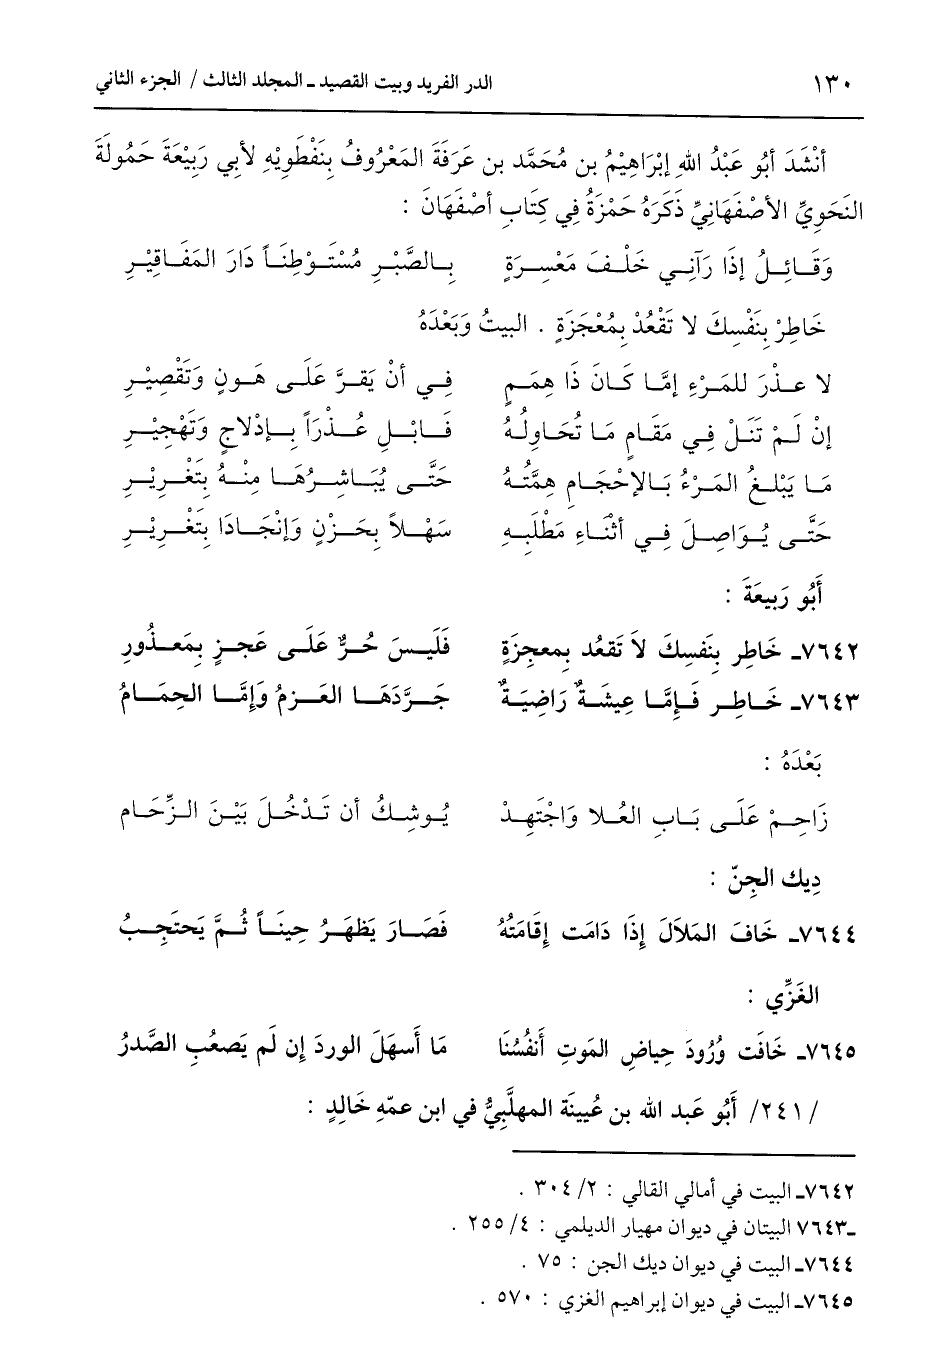 ١٣٠ الدر الفريد وبيت القصيد ـ المجلد الثالث / الجزء الثاني
أَنْشَدَ أَبُو عَبْدُ اللهِ إِبْرَاهِيْمُ بن مُحَمَّد بن عَرَفَةَ المَعْرُوفُ بِنَفْطَوَيْهِ لأَبي رَبِيْعَةَ حَمُولَةَ
النَحوِيِّ الأَصْفَهَانِيِّ ذَكَرَهُ حَمْزَةُ فِي كِتَابِ أَصْفَهَانَ :
وَقَائِلُ إِذَا رَآنِي خَلْفَ مَعْسِرَةٍ بِالصَّبْرِ مُسْتَوْطِنَاً دَارَ المَفَاقِيْرِ
خَاطِرْ بِنَفْسِكَ لا تَقْعُدْ بِمُعْجَزَةٍ . البَيتُ وَبَعْدَهُ
لا عذْرَ للمَرْءِ إِمَّا كَانَ ذَا هِمَمٍ فِي أَنْ يَقرَّ عَلَى هَونٍ وَتَقْصِيْرِ
إِنْ لَمْ تَنَلْ فِي مَقَامٍ مَا تُحَاوِلُهُ فَابْلِ عُذْرَاً بِإِدْلاجٍ وَتَهْجِيْرِ
مَا يَبْلغُ المَرْءُ بَالإِحْجَامِ هِمَّتُهُ حَتَّى يُبَاشِرُهَا مِنْهُ بِتَغْرِيْرِ
حَتَّى يُوَاصِلَ فِي أَثْنَاءِ مَطْلَبِهِ سَهْلاً بِحَزْنٍ وَإِنْجَادَا بِتَغْرِيْرِ
أَبُو رَبِيعَةَ :
٧٦٤٢ـ خَاطِر بِنَفسِكَ لاَ تَقعُد بِمعجِزَةٍ فَلَيسَ حُرٌّ عَلَى عَجزٍ بِمَعذُورِ
٧٦٤٣ـ خَاطِر فَإِمَّا عِيشَةٌ رَاضِيَةٌ جَرَّدَهَا العَزمُ وَإِمَّا الحِمَامُ
بَعْدَهُ :
زَاحِمْ عَلَى بَابِ العُلا وَاجْتَهِدْ يُوشِكُ أن تَدْخُلَ بَيْنَ الزِّحَامِ
دِيك الجِنّ :
٧٦٤٤ـ خَافَ المَلاَلَ إِذَا دَامَت إِقَامَتُهُ فَصَارَ يَظهَرُ حِينَاً ثُمَّ يَحتَجِبُ
الغَزِّي :
٧٦٤٥ـ خَافَت وُرُودَ حِيَاضِ المَوتِ أَنفُسُنَا مَا أَسهَلَ الوردَ إِن لَم يَصعُبِ الصَّدَرُ
/ ٢٤١/ أَبُو عَبد الله بن عُيينَة المهلَّبيُّ في ابن عمّهِ خَالِدٍ :
٧٦٤٢ـ البيت في أمالي القالي : ٢/ ٣٠٤ .
ـ٧٦٤٣ البيتان في ديوان مهيار الديلمي : ٤/ ٢٥٥ .
٧٦٤٤ـ البيت في ديوان ديك الجن : ٧٥ .
٧٦٤٥ـ البيت في ديوان إبراهيم الغزي : ٥٧٠ .